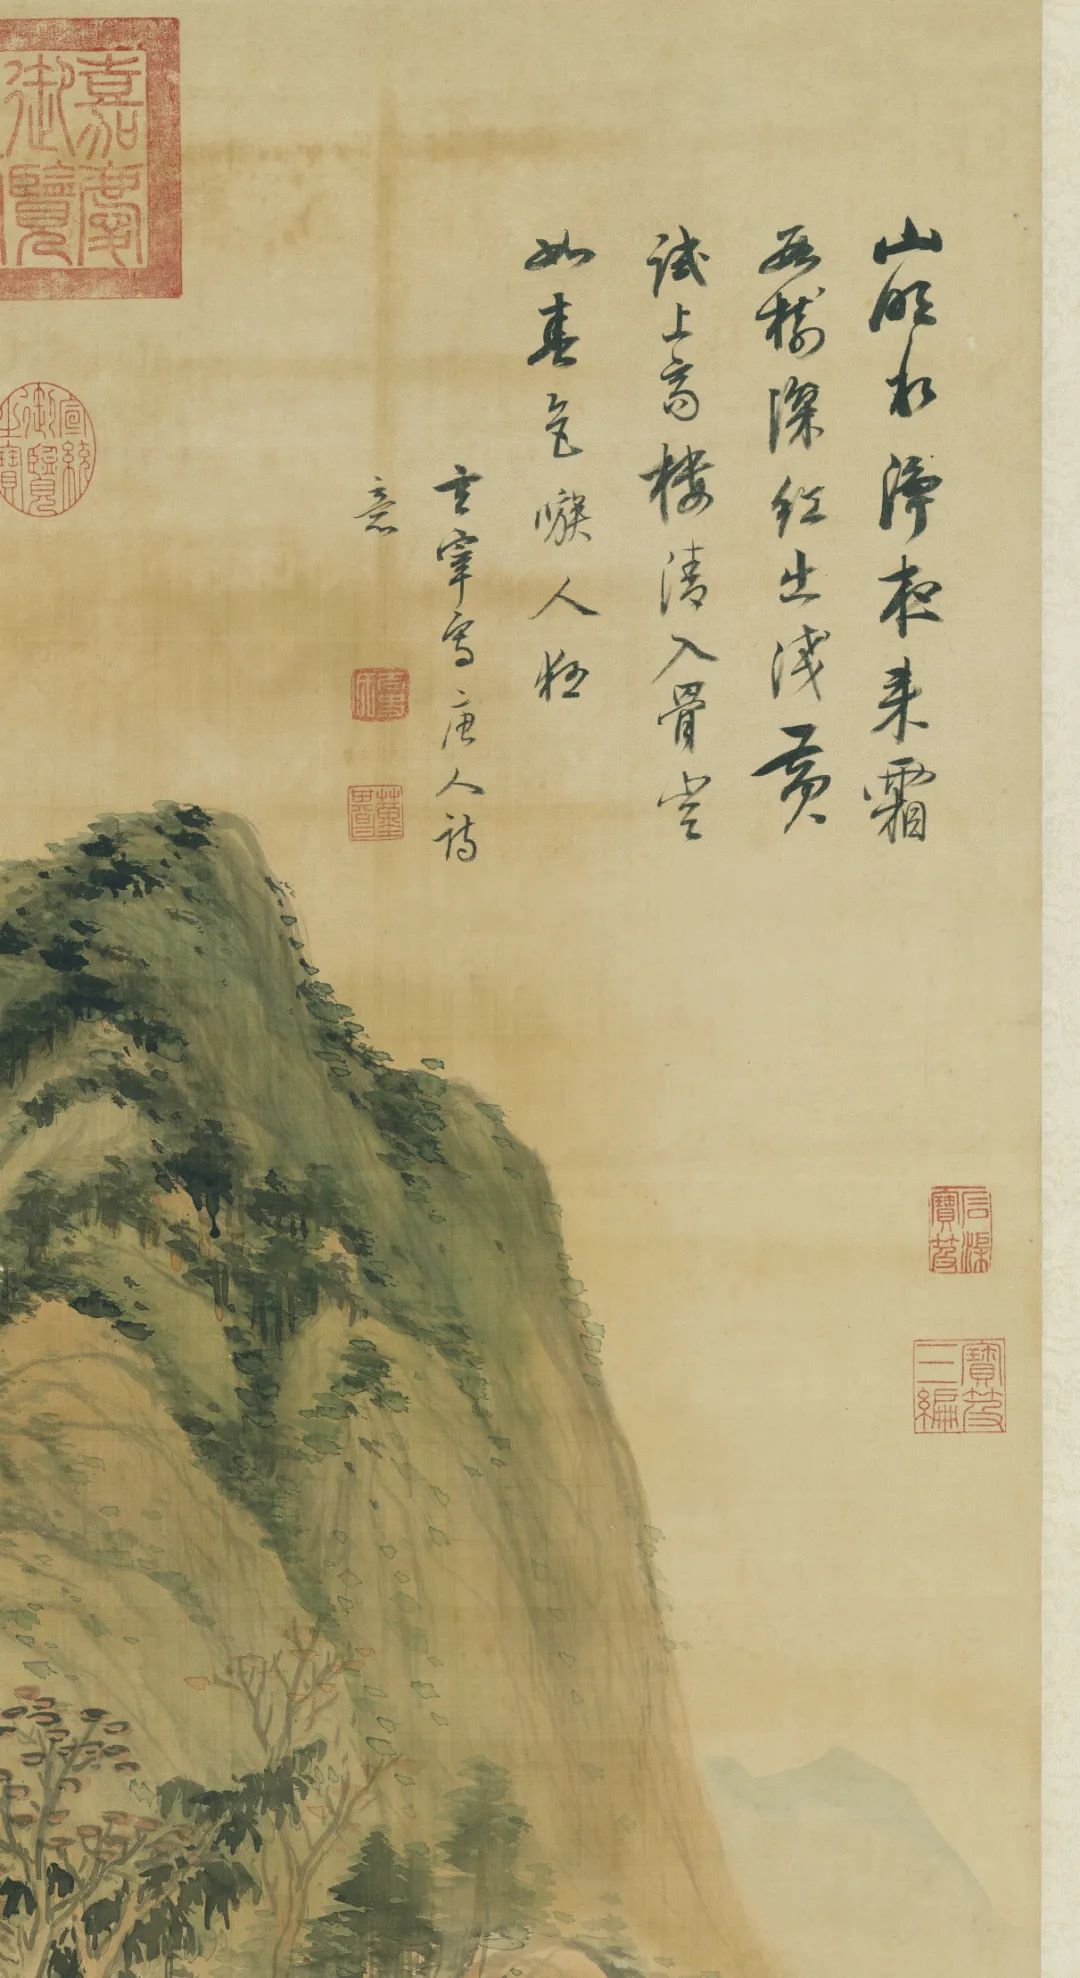 山明水淨夜來霜
數樹深紅出淺黃
試上高樓清入骨豈
如春色嗾人狂
玄宰寫唐人詩
意
嘉慶
御覽
宣統
御覽
之寶
石渠
寶笈
寶笈
三編